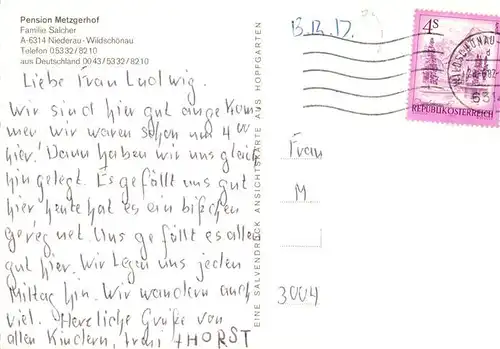 Pension Metzgerhof
Familie Salcher
A-6314 Niederau-Wildschönau
Telefon 05332/8210
aus Deutschland 0043/5332/8210
Liebe Frau Ludwig.
Wir sind hier gut ange kom
mer wir waren schon um 4 00
hier! Dann haben wir uns gleich
hin gelegt. Es gefällt uns gut
hier heute hat es ein bißchen
gereg net. Uns ge fällt es allen
gut hier. Wir legen uns jeden
Mittag hin. Wir wandern auch
viel. Herzliche Grüße von
allen Kindern, HORST
EINE SALVENDRUCK ANSICHTSKARTE AUS HOPFGARTEN
4s
REPUBLIK ÖSTERREICH
WILDSCHÖNAU
Frau
M
3004